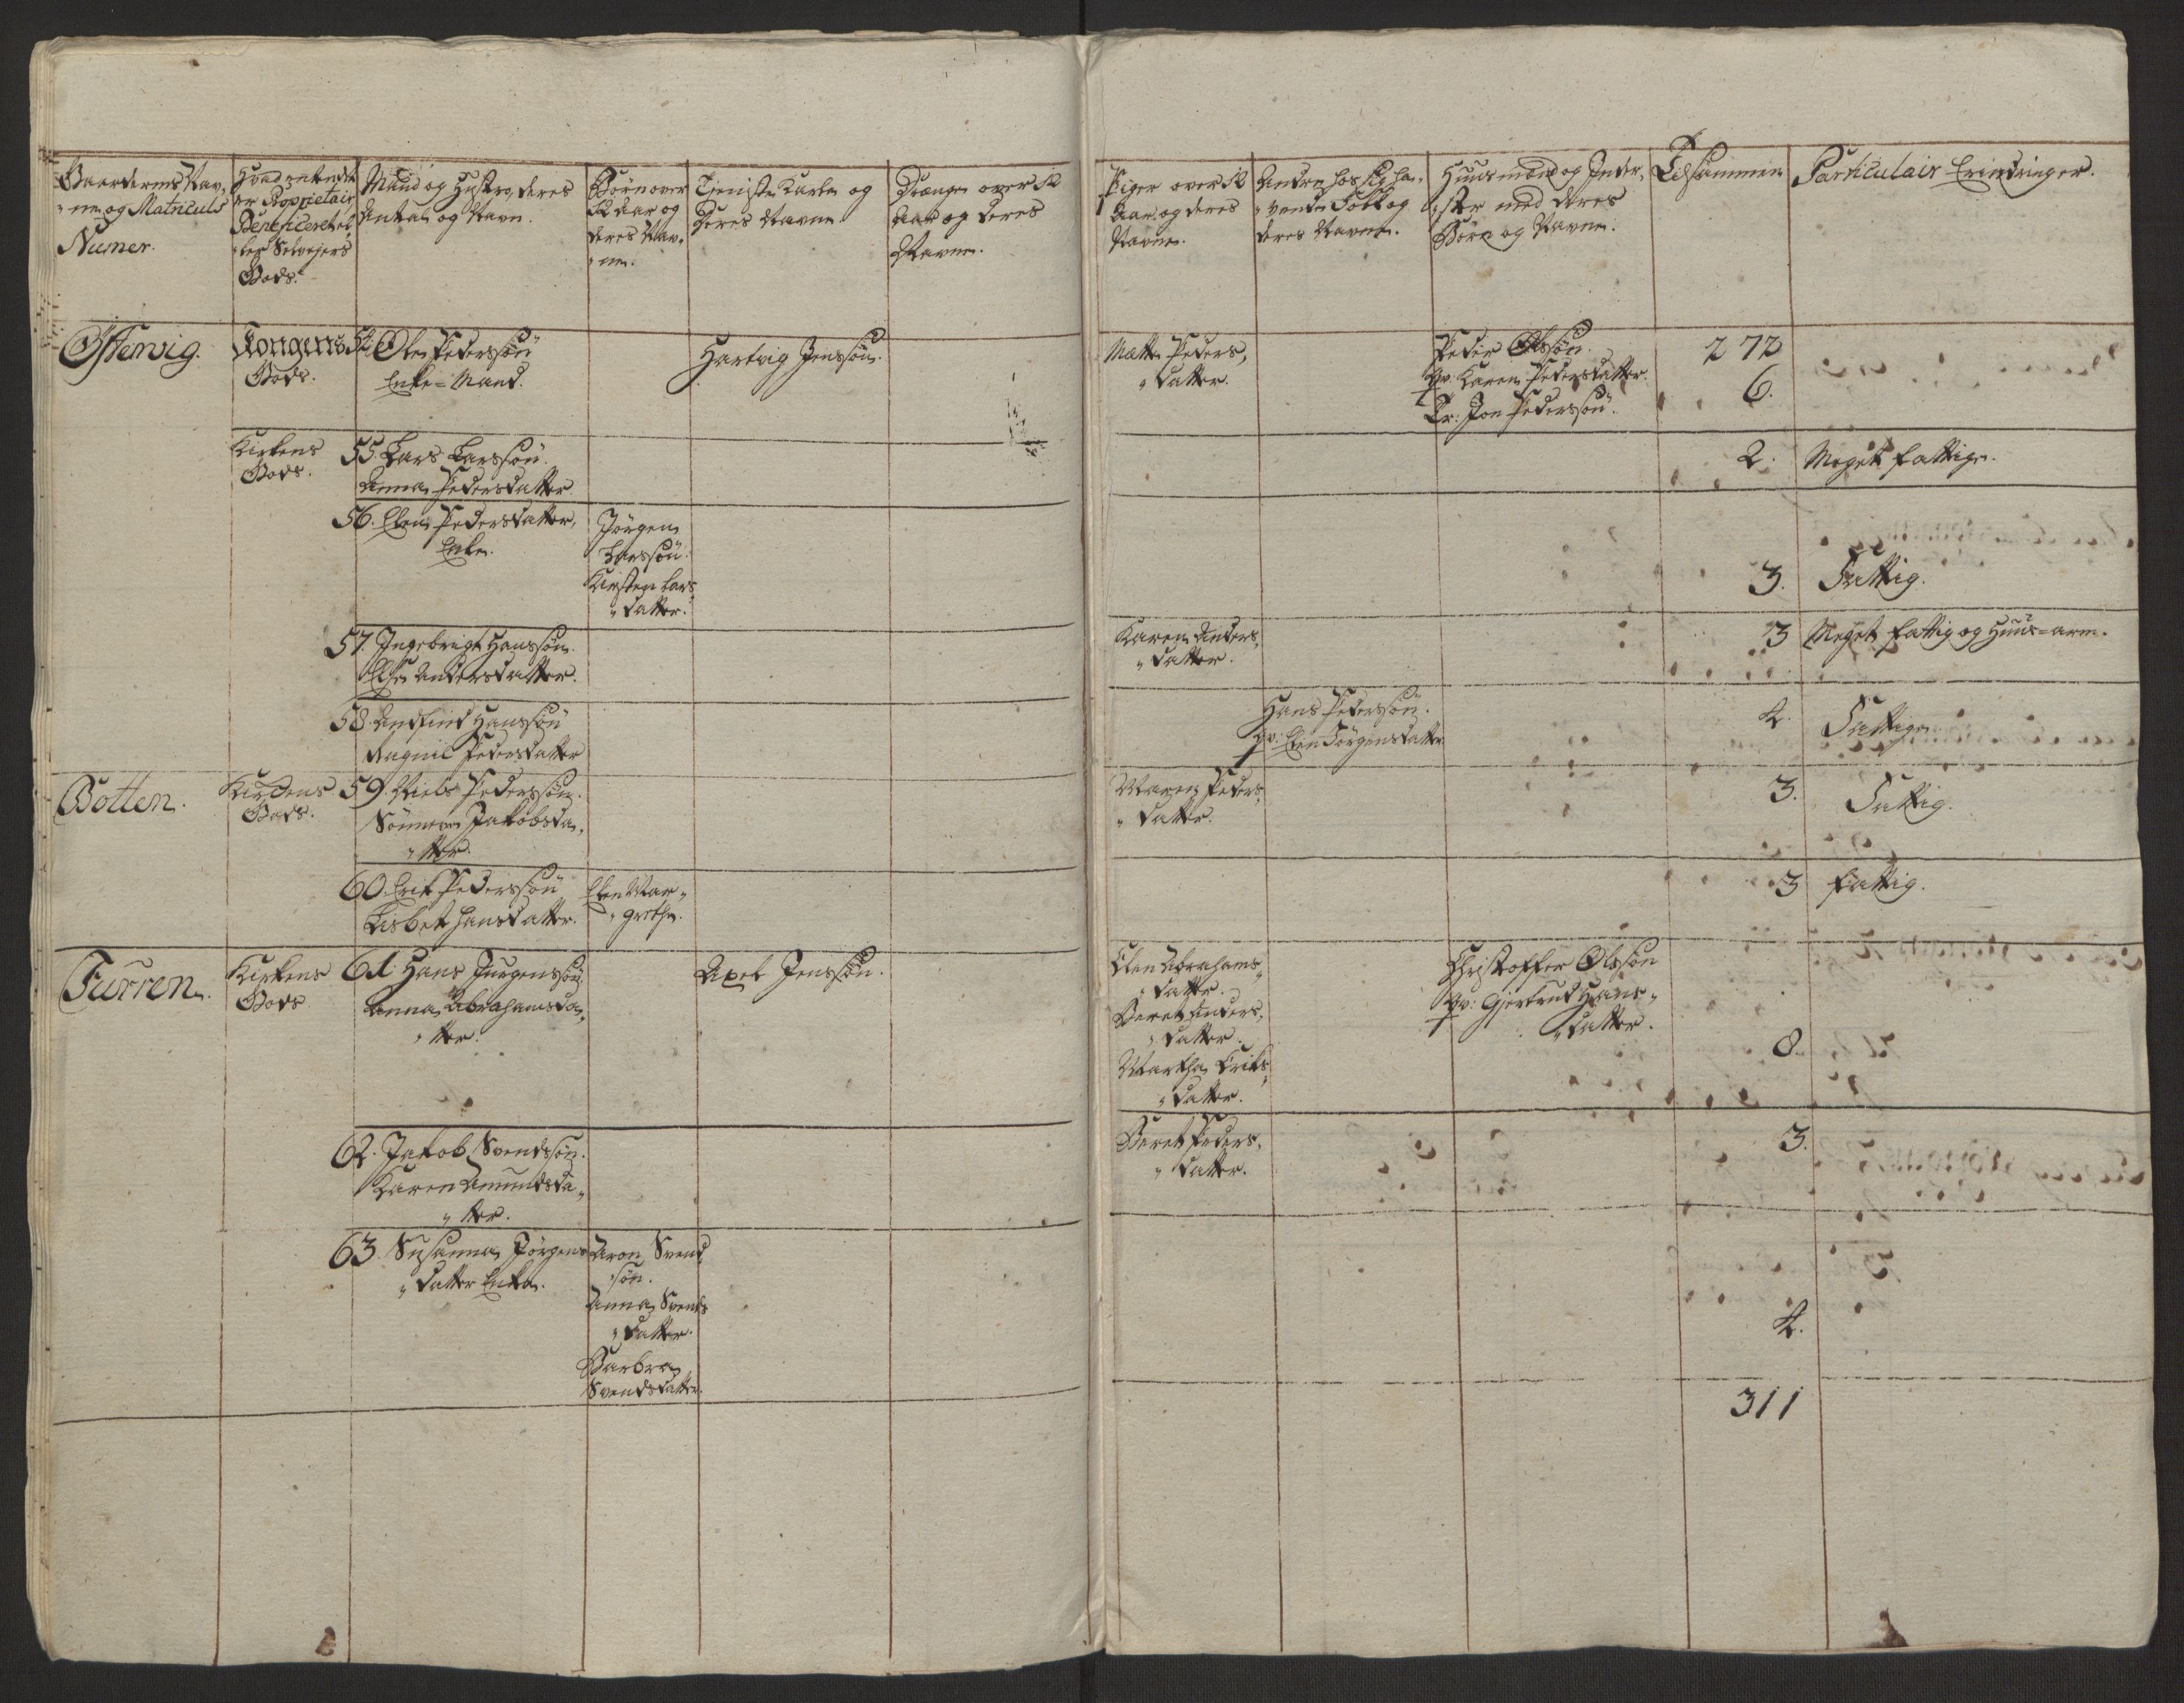 Gaardernes Nav-
ne og Matriculs
Numer.
Hvad enten det
er Proprietair
Beneficeret el-
ler Selvejers
Gods.
Mand og Hustro, deres
Antal og Navn.
Börn over
12 Aar og
deres Nav-
ne.
Tieniste Karle og
Deres Navne
Drænge over 12
Aar og deres
Navne.
Piger over 12
Aar og deres
Navne.
Andre hos sig ha-
vende Folk og
deres Navne.
Huusmænd og Inder-
ster med deres
Börn og Navne.
Tilsammen
Particulair Erindringer.
Östervig.
Kongens
Gods.
54. Ole Pedersøn
Enke-Mand.
Hartvig Jensøn.
Mætte Peders-
datter.
Peder Olsøn.
Qv: Karen Pedersdatter.
Dr: Jon Pedersøn.
272
6.
Kirkens
Gods.
55. Lars Larssøn.
Anna Pedersdatter
2.
Meget fattige.
56. Elen Pedersdatter,
Enke.
Jörgen
Larssøn.
Kirsten Lars
datter.
3.
Fattig.
57. Ingebrigt Hanssøn.
Else Andersdatter.
Karen Anders-
datter.
3
Meget fattig og Huus-arm.
58. Andfind Hanssøn
Ragnil Pedersdatter
Hans Pedersøn.
Qv: Elen Jörgensdatter
4.
Fattige
Botten.
Kirkens
Gods.
59. Niels Pedersøn.
Sönneve Jakobsda-
tter.
Maren Peders
datter.
3.
Fattig.
60. Erik Pedersøn
Lisbet Hansdatter.
Elen Mar-
grethe.
3
fattig.
Furren.
Kirkens
Gods
61. Hans Jürgenssøn.
Anna Abrahamsda-
tter.
Axel Jenssøn.
Elen Abrahams-
datter.
Beret Anders-
datter.
Martha Eriks
datter.
Christoffer Olssøn
Qv: Gjertrud Hans-
datter.
8.
62. Jakob Svendssøn.
Karen Amundsda-
tter.
Beret Peders-
datter.
3.
63. Susanna Jörgens
datter Enke.
Aron Svend
søn.
Anna Svends
datter.
Barbra
Svendsdatter.
4.
311